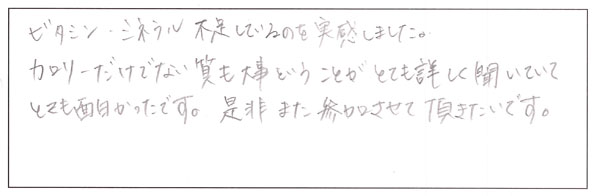 ビタミン・ミネラル 不足しているのを実感しました。
カロリーだけでない質も大事ということがとても詳しく聞いていて
とても面白かったです。是非また参加させて頂きたいです。